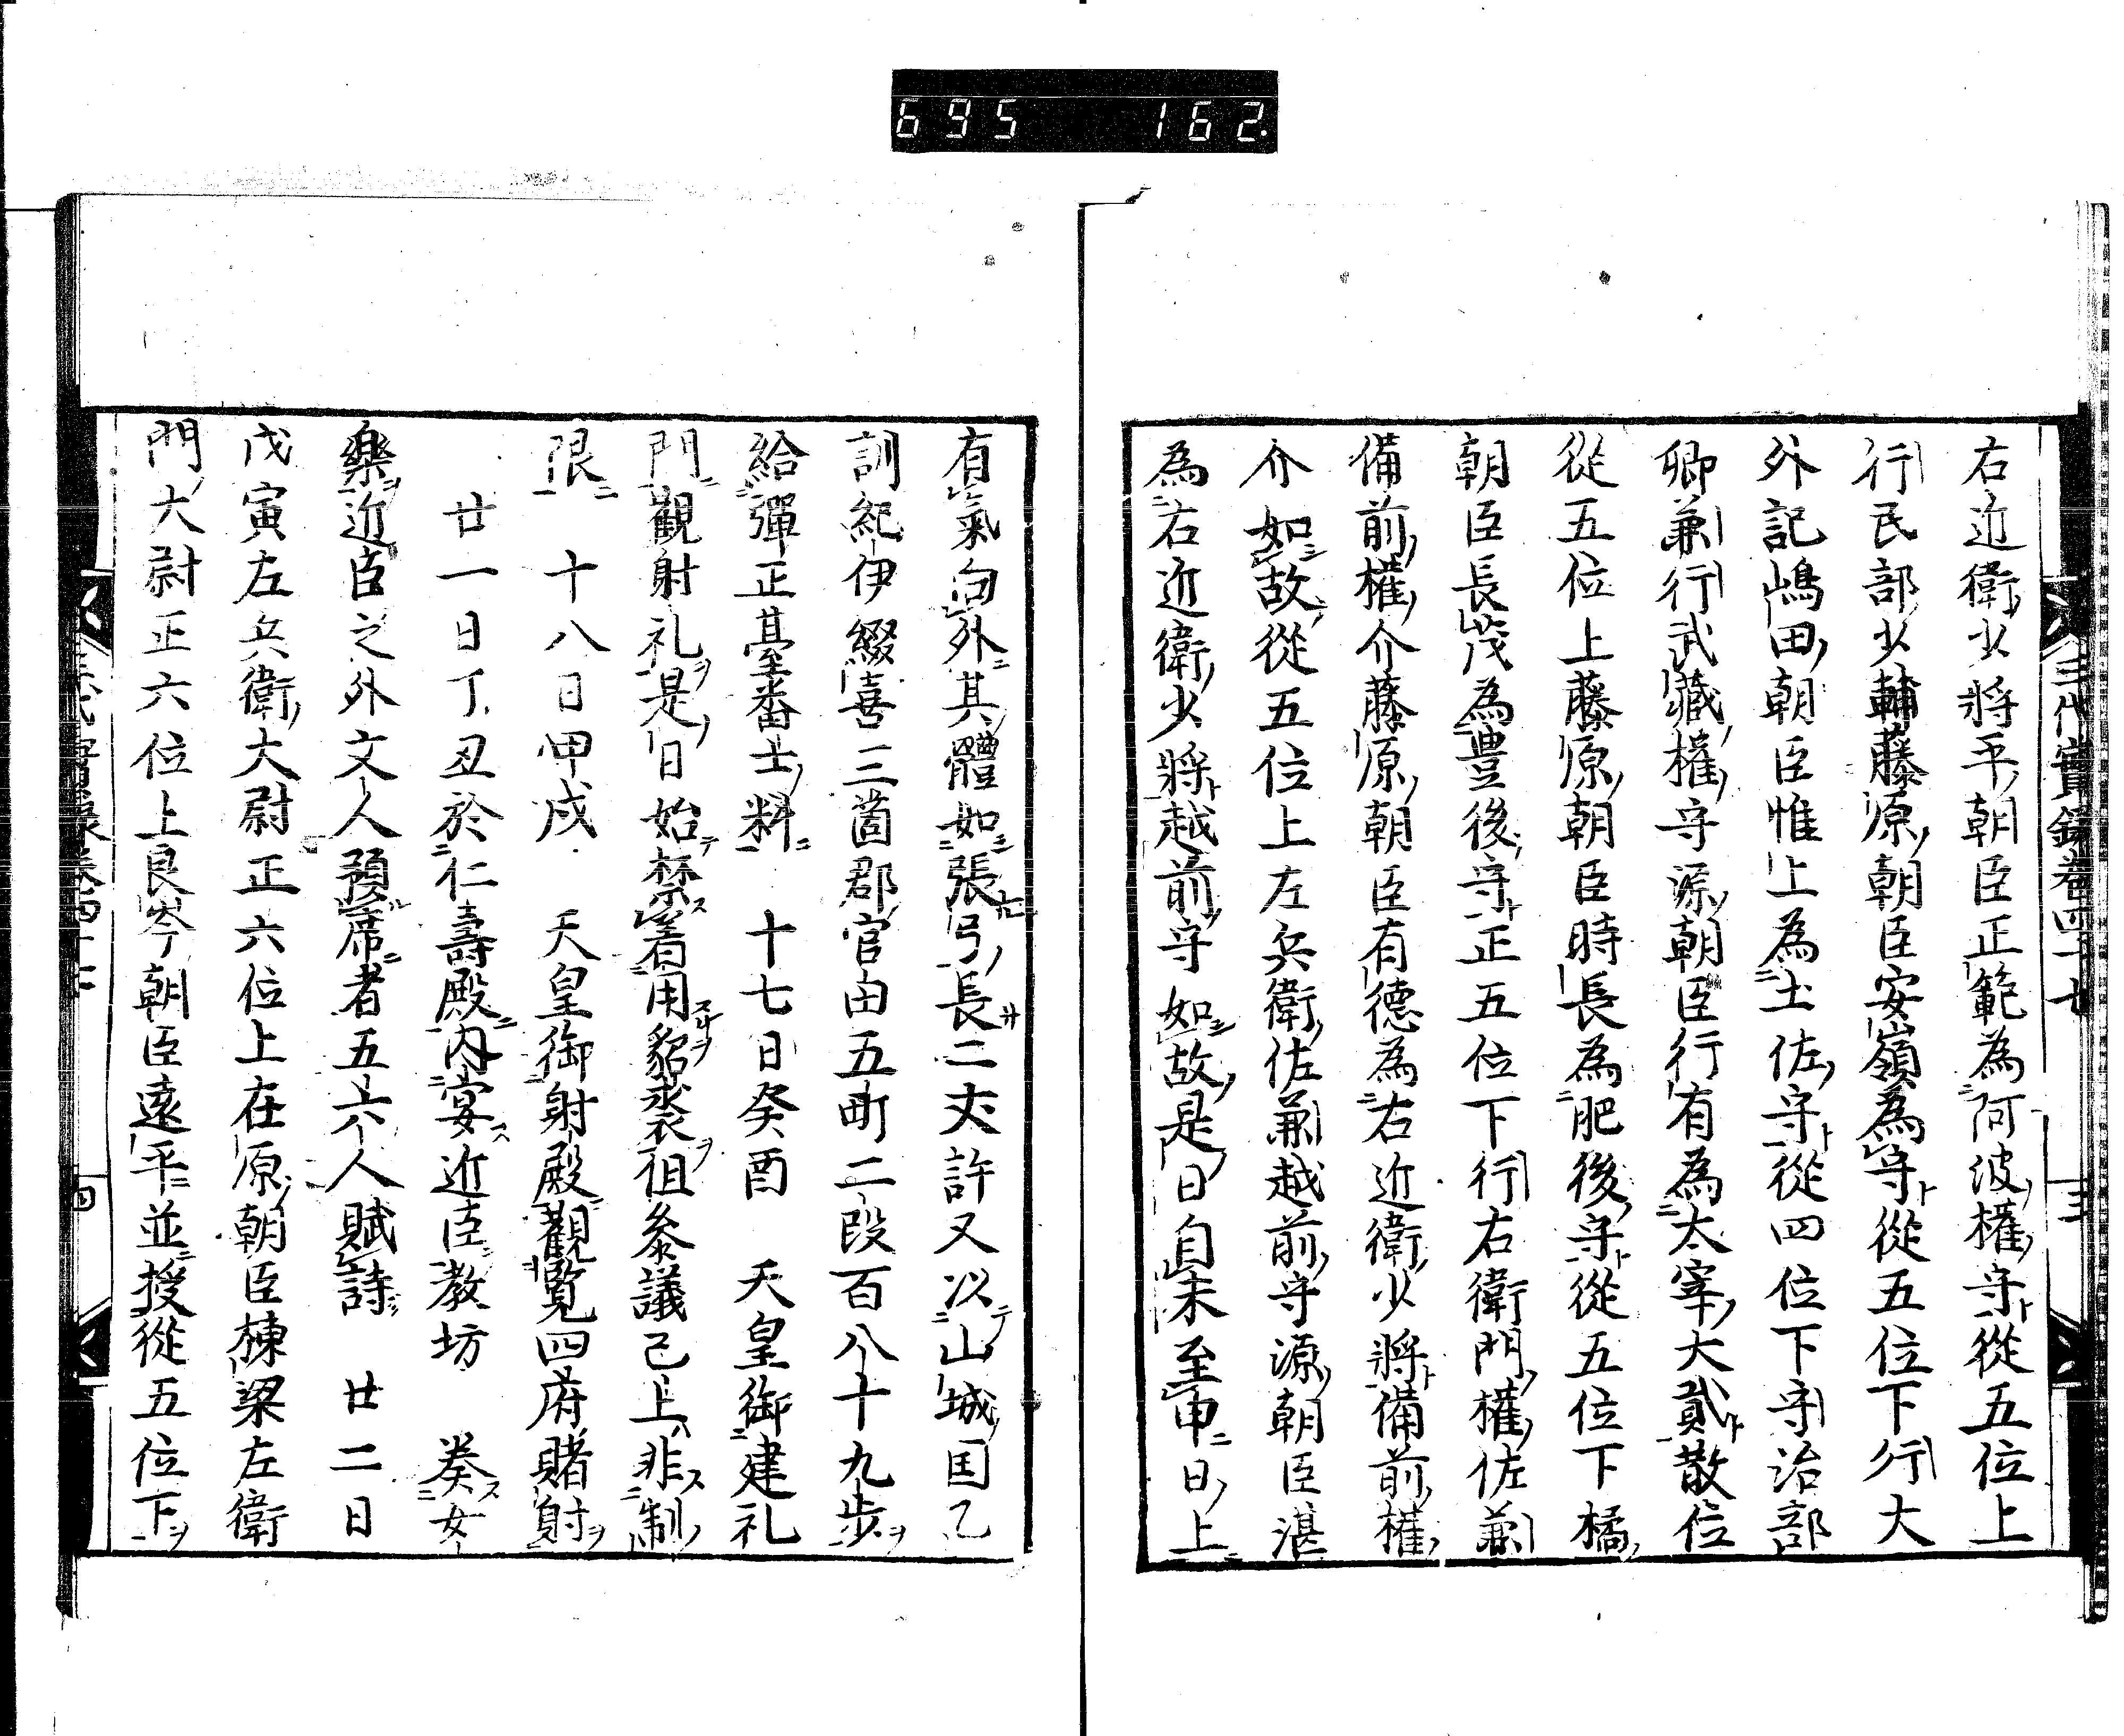 695 162.
三代實録卷四十七
三
右近衛少將平朝臣正範為阿波權守從五位上
行民部少輔藤原朝臣安嶺為守從五位下行大
外記嶋田朝臣惟上為土佐守從四位下守治部
卿兼行武藏權守源朝臣行有為太宰大貳散位
從五位上藤原朝臣時長為肥後守從五位下橘
朝臣長茂為豊後守正五位下行右衛門權佐兼
備前權介藤原朝臣有德為右近衛少將備前權
介如故從五位上左兵衛佐兼越前守源朝臣湛
為右近衛少將越前守如故是日自未至申日上
有氣向外其體如張弓長二丈許又以山城国乙
訓紀伊綴喜三箇郡官田五町二段百八十九步
給彈正基番士料 十七日癸酉 天皇御建礼
門觀射礼是日始禁着用貂裘徂參議已上非制
限 十八日甲戌 天皇御射殿觀覧四府賭射
廿一日丁丑於仁壽殿内宴近臣教坊 奏女
樂近臣之外文人預席者五六人賦詩 廿二日
戊寅左兵衛大尉正六位上在原朝臣棟梁左衛
門大尉正六位上良岑朝臣遠平並授從五位下
四